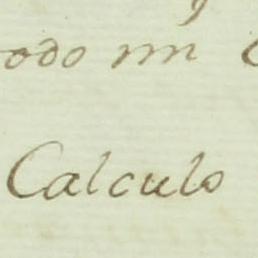 odo un
Calculo